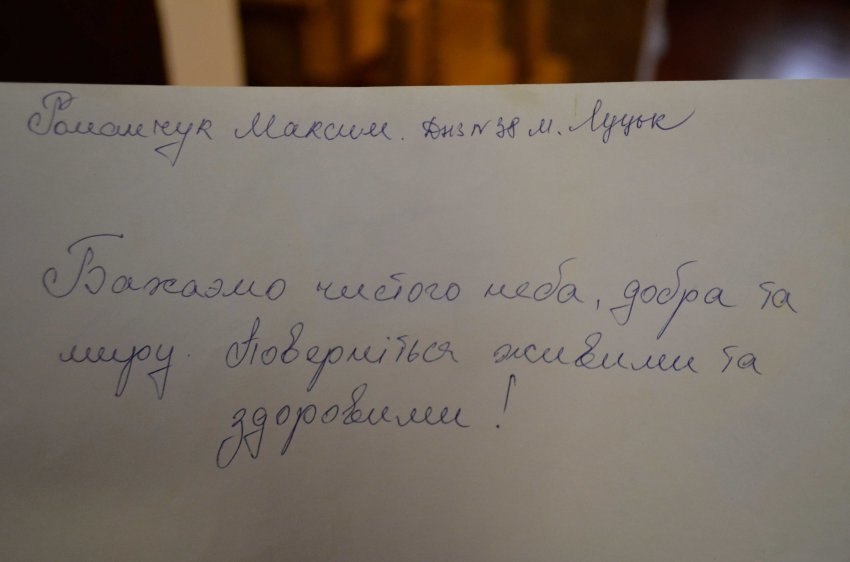 Романчук Максим. ДНЗ №38 м. Луцьк
Бажаємо чистого неба, добра та
миру. Поверніться живими та
здоровими!